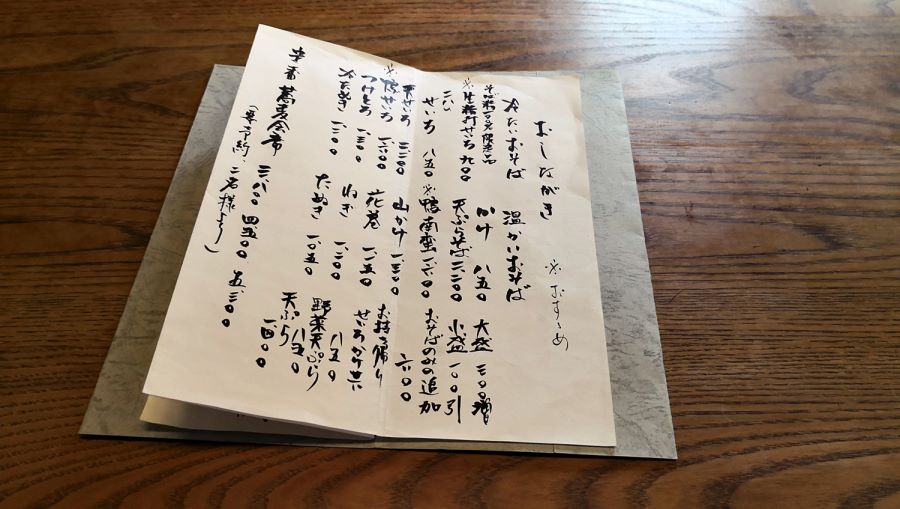 おしながき
※おすゝめ
冷たいおそば
※生粉打せいろ 九〇〇
せいろ 八五〇
天せいろ
※鴨せいろ 一、六〇〇
つけとろ 一、三〇〇
冷たぬき 一、二〇〇
温かいおそば
かけ 八五〇
天ぷらそば
※鴨南蛮 一、六〇〇
山かけ 一、三〇〇
花巻 一、一五〇
ねぎ 一、二〇〇
たぬき 一、〇五〇
大盛 三〇〇増
小盛 一〇〇引
おそばのみの追加
六〇〇
お持ち帰り
せいろかけ共
八五〇
野菜天ぷら
八五〇
天ぷら
一、四〇〇
蕎麦会席 三、八〇〇 四、五〇〇 五、三〇〇
(要予約 二名様より)